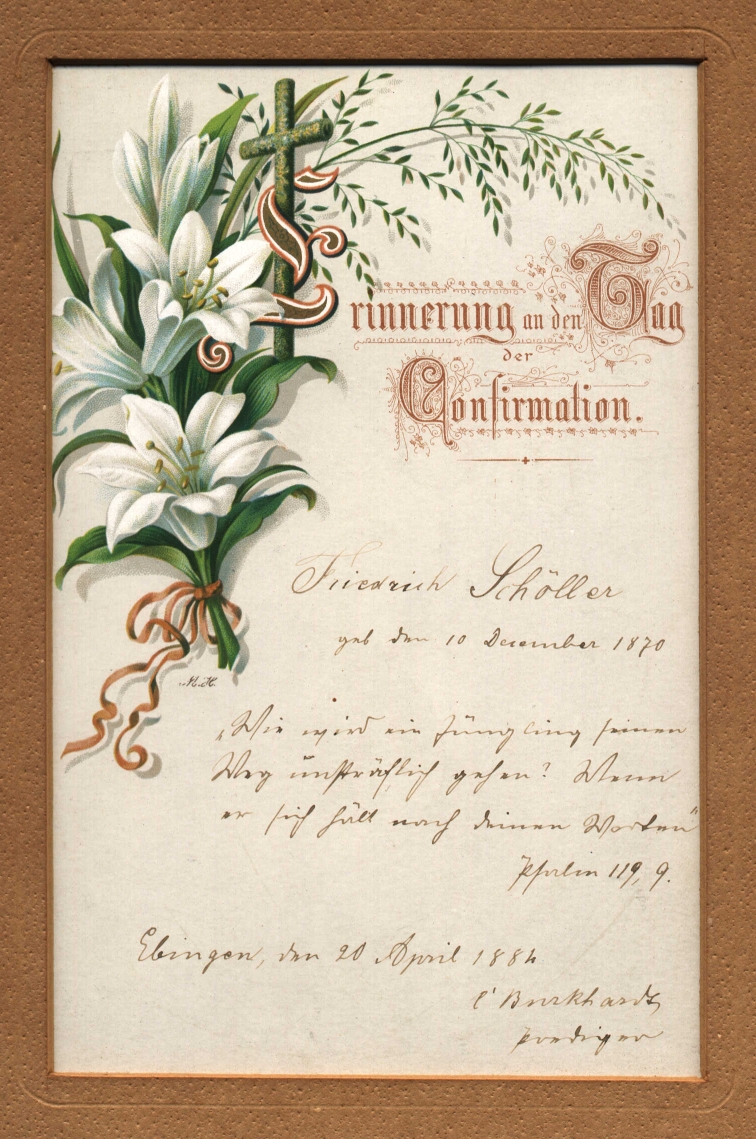 Erinnerung an den Tag
der
Confirmation.
M.H.
Friedrich Schöller
geb den 10 December 1870
„Wie wird ein Jüngling seinen
Weg unsträflich gehen? Wenn
er sich hält nach deinen Worten"
Psalm 119, 9.
Ebingen, den 20 April 1884
C Burkhardt
Prediger